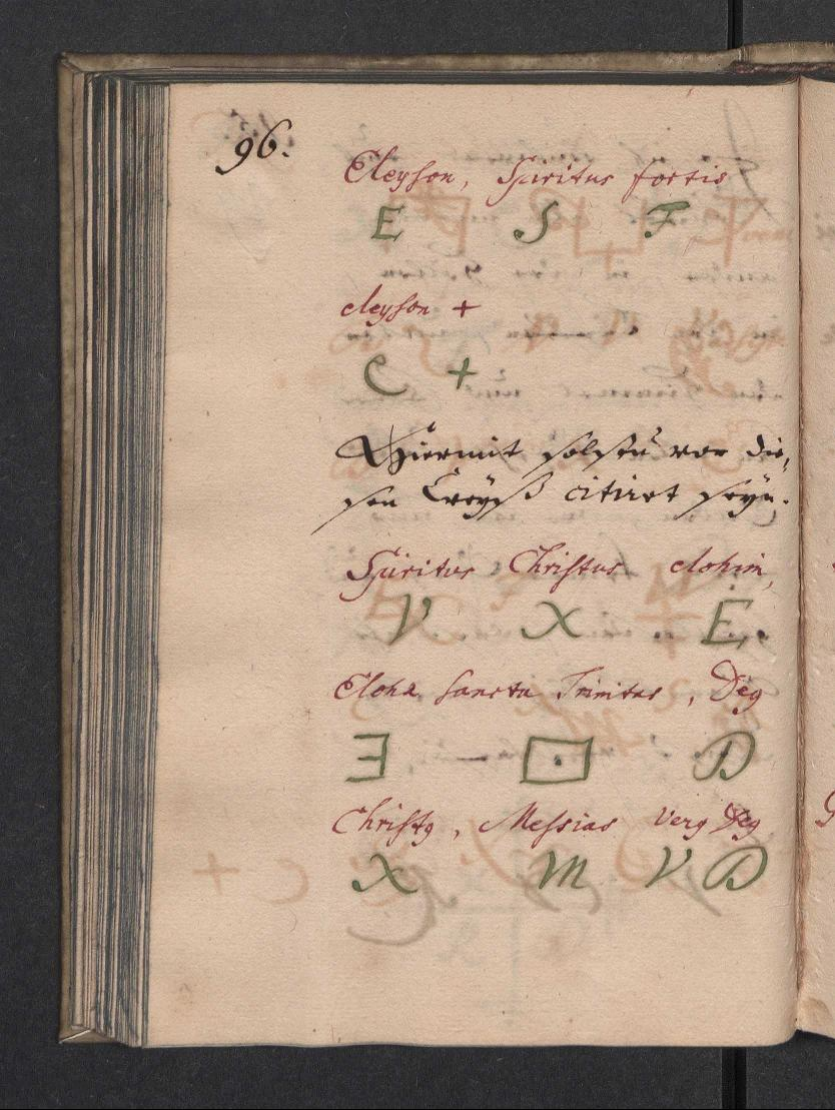 96.
Eleyson, Spiritus fortis
E S F
eleyson +
C +
Hiermit solstu vor die,
sen Creyß citiret seyn.
Spiritus Christus elohim,
V X E.
Eloha sancta Trinitas, Deg
Ǝ — ⊡ D
Christg, Messias Verg Deg
X M V D